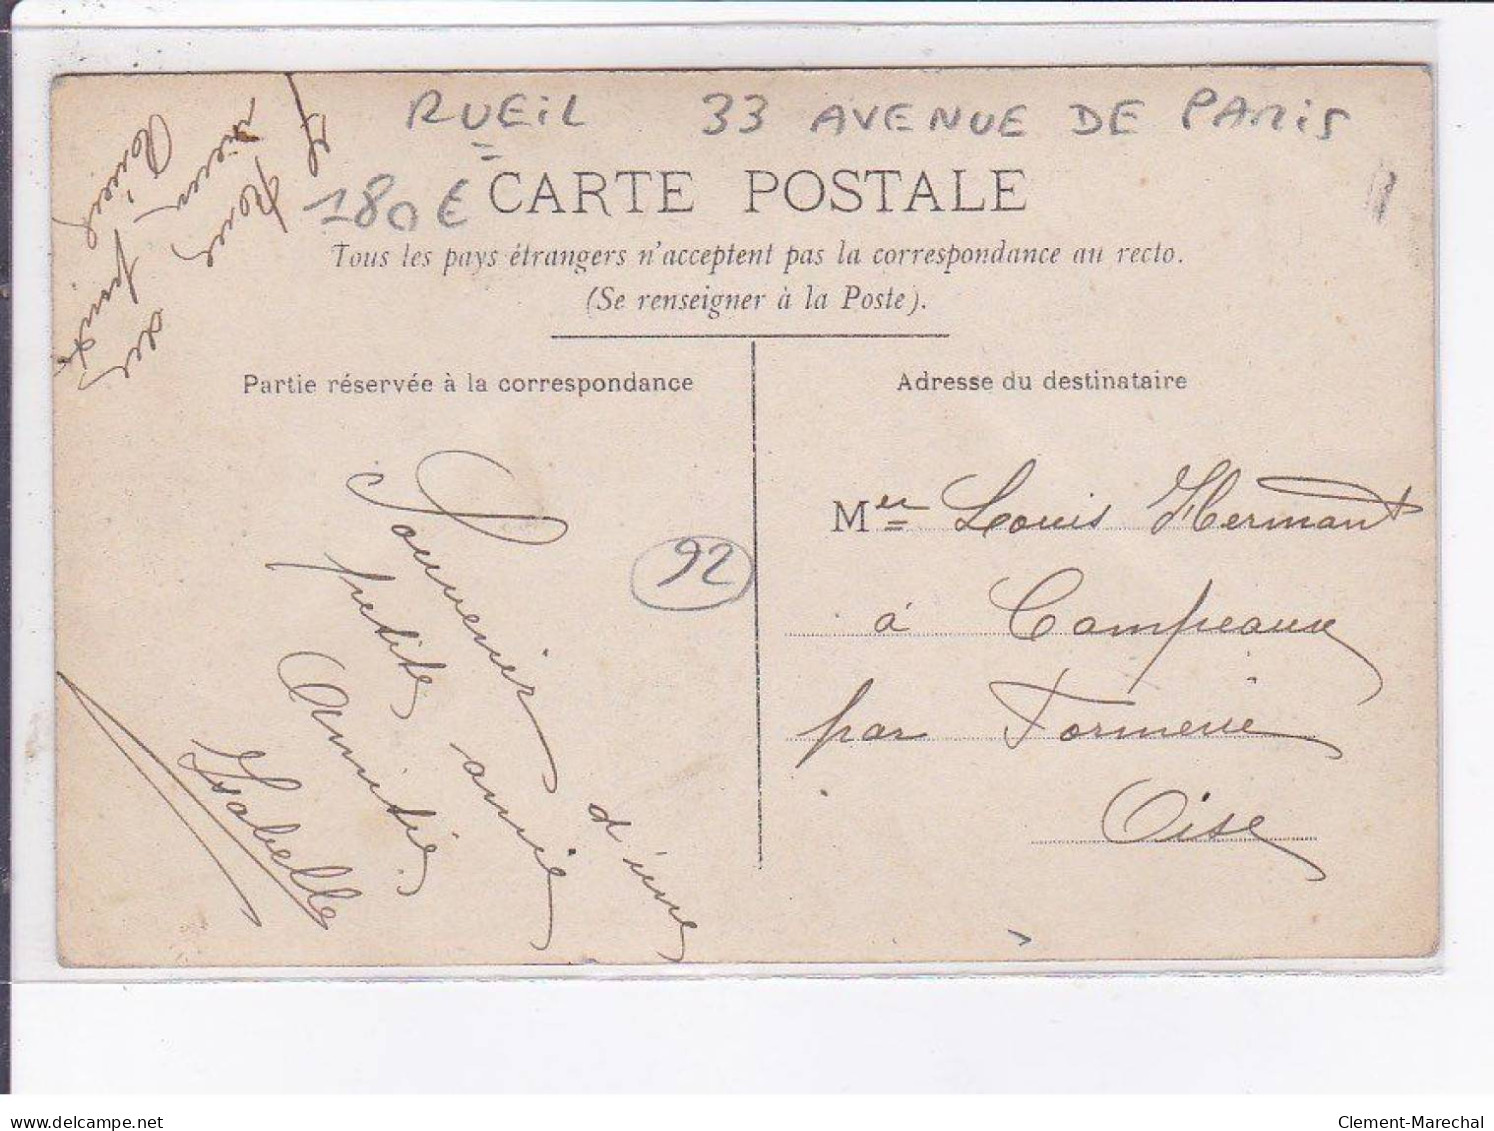 RUEIL 33 AVENUE DE PARIS
180€
CARTE POSTALE
Tous les pays étrangers n'acceptent pas la correspondance au recto.
(Se renseigner à la Poste).
Partie réservée à la correspondance
Adresse du destinataire
Souvenir d'une
petite amie
Amitié.
Isabelle
92
Mer Louis Hermant
à Campeaux
par Formerie
Oise
delcampe.net
Clement-Marechal